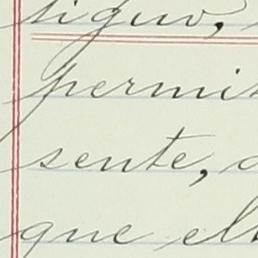 sigue,
permi
sente,
que el